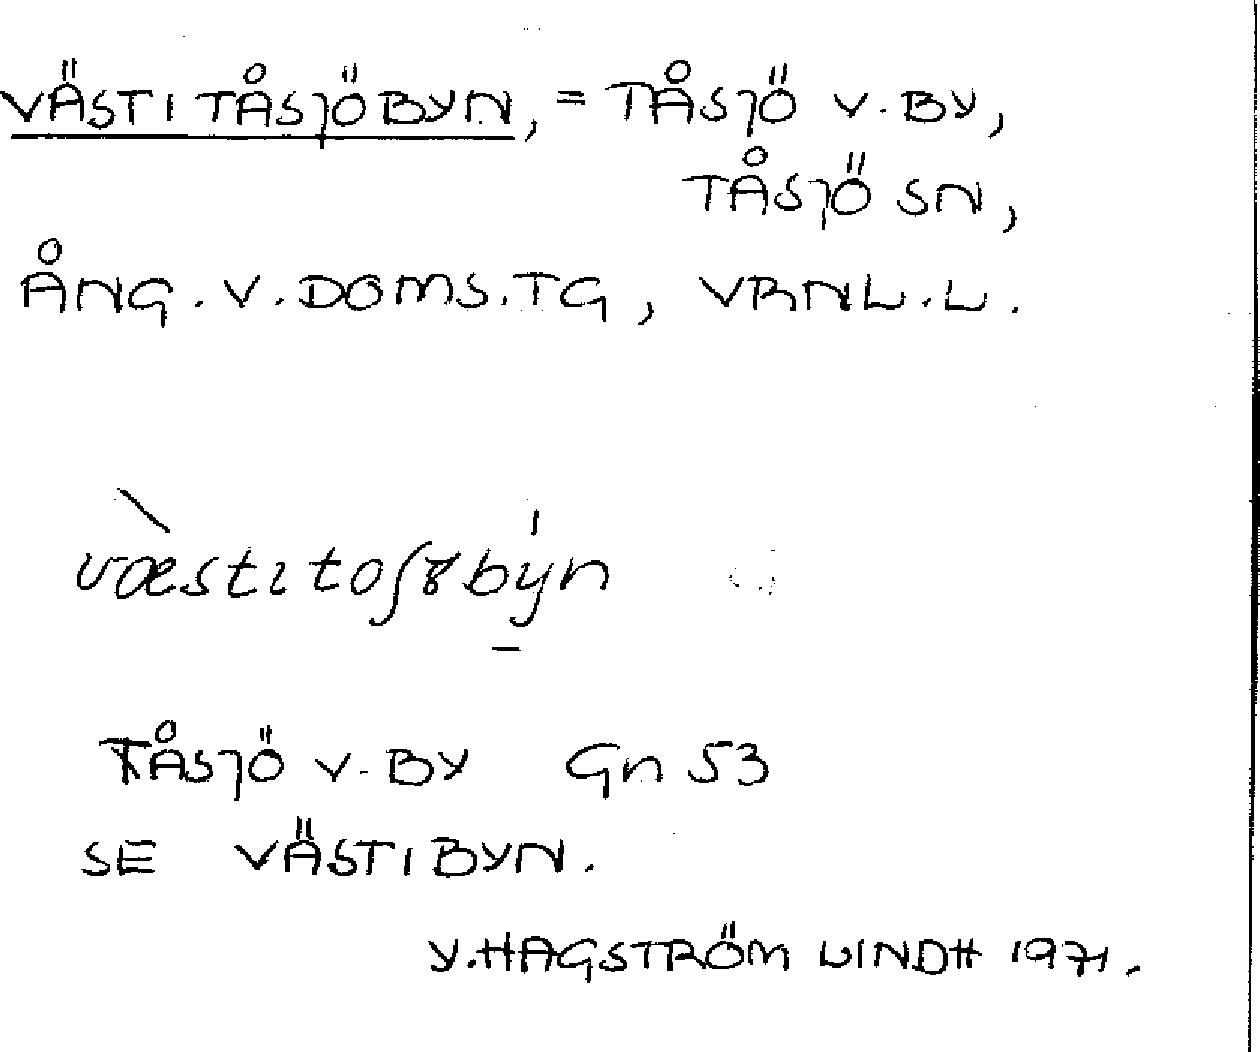 VÄSTI TÅSJÖBYN, = TÅSJÖ V. BY,
TÅSJÖ SN,
ÅNG. V. DOMS. TG, VRNL. L.
TÅSJÖ V. BY Gn 53
SE VÄSTIBYN.
Y. HAGSTRÖM LINDH 1971.